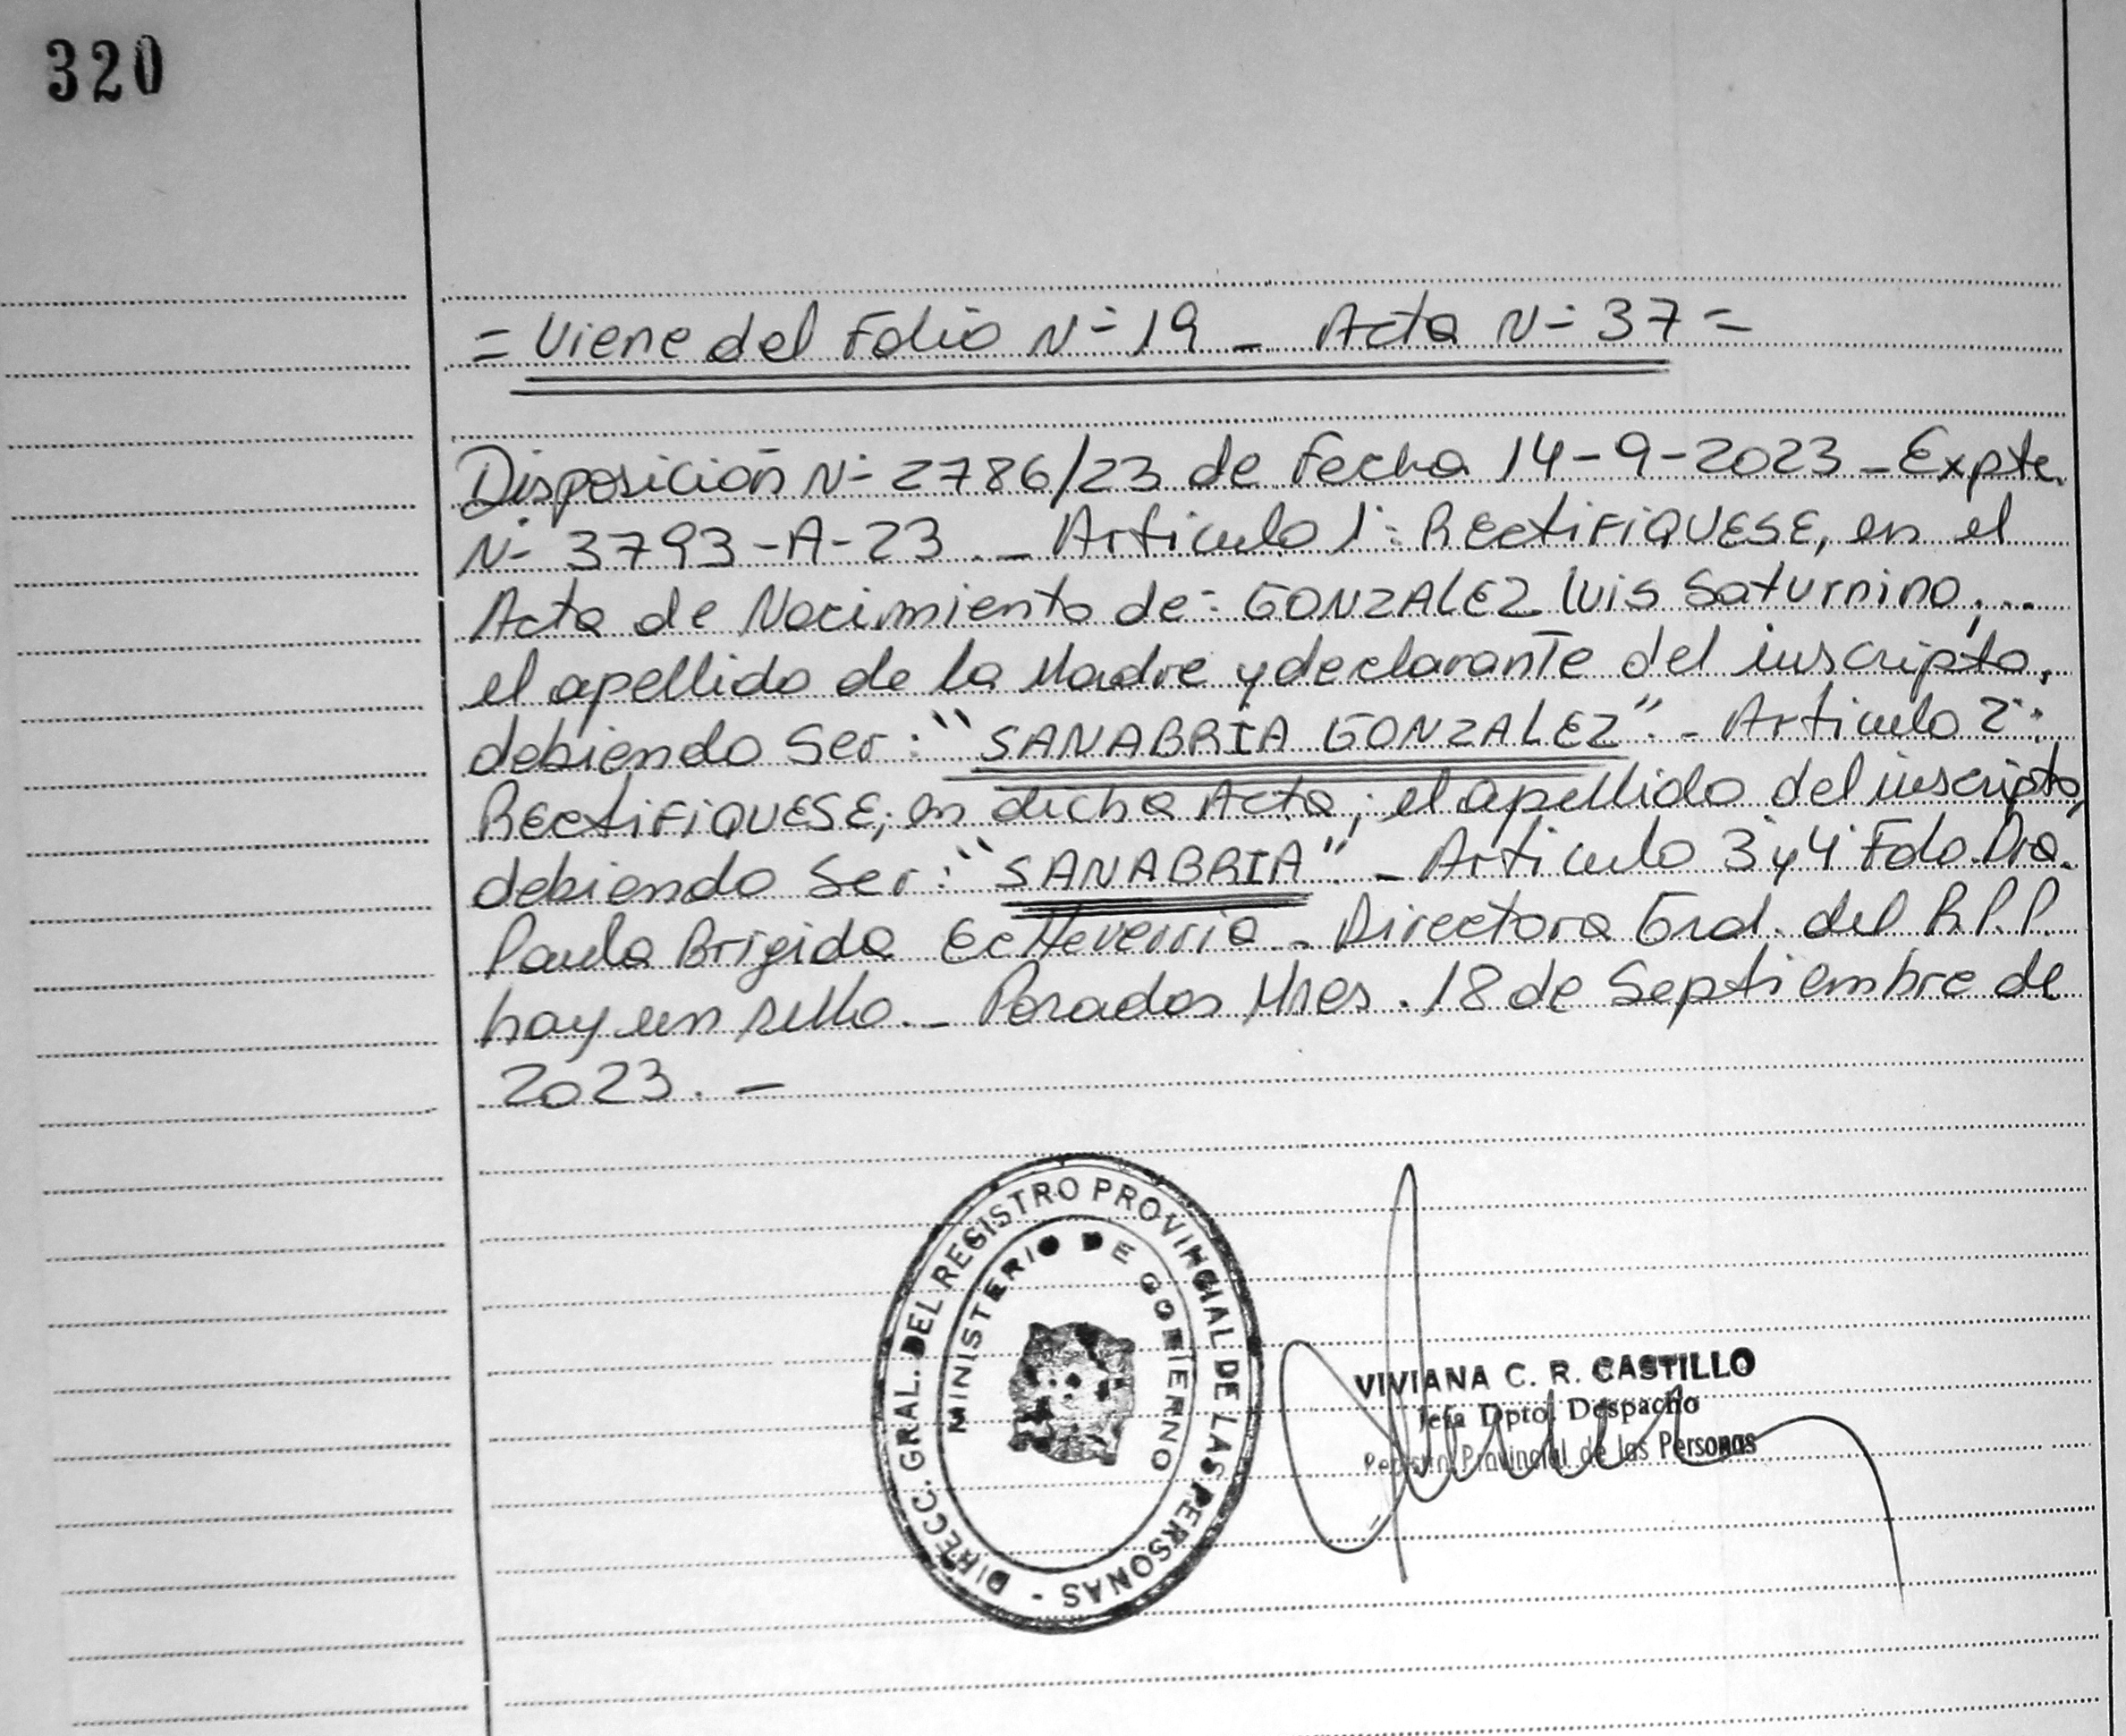 320
= Viene del Folio N- 19 - Acta N- 37 =
Disposición N- 2786/23 de Fecha 14-9-2023 - Expte.
N- 3793-A-23.- Articulo 1°: RECtiFiQUESE, en el
Acta de Nacimiento de: GONZALEZ Luis Saturnino, ...
el apellido de la Madre y declarante del inscripto,
debiendo Ser: "SANABRIA GONZALEZ".- Articulo 2°:
RECtiFiQUESE, en dicha Acta, el apellido del inscripto,
debiendo Ser: "SANABRIA".- Articulo 3° y 4° Fdo. Dra.
Paula Brigida Echeverria - Directora Gral. del R.P.P.
hay un sello.- Posadas Mnes. 18 de Septiembre de
2023.-
DIRECC. GRAL. DEL REGISTRO PROVINCIAL DE LAS PERSONAS -
MINISTERIO DE GOBIERNO
VIVIANA C. R. CASTILLO
Jefa Dpto. Despacho
Registro Provincial de las Personas